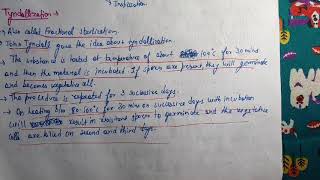 Indication
Tyndallization →
→ Also called Fractional sterilization.
→ John Tyndall gave the idea about tyndallization.
→ The substance is heated at temperature of about 100°C for 30 mins
and then the material is incubated. If spores are present, they will germinate
and becomes vegetative cell.
→ The procedure is repeated for 3 successive days.
→ On heating 80-100°C for 20 min on successive days with incubation
will result in resistant spores to germinate and the vegetative
cells are killed on second and third day.